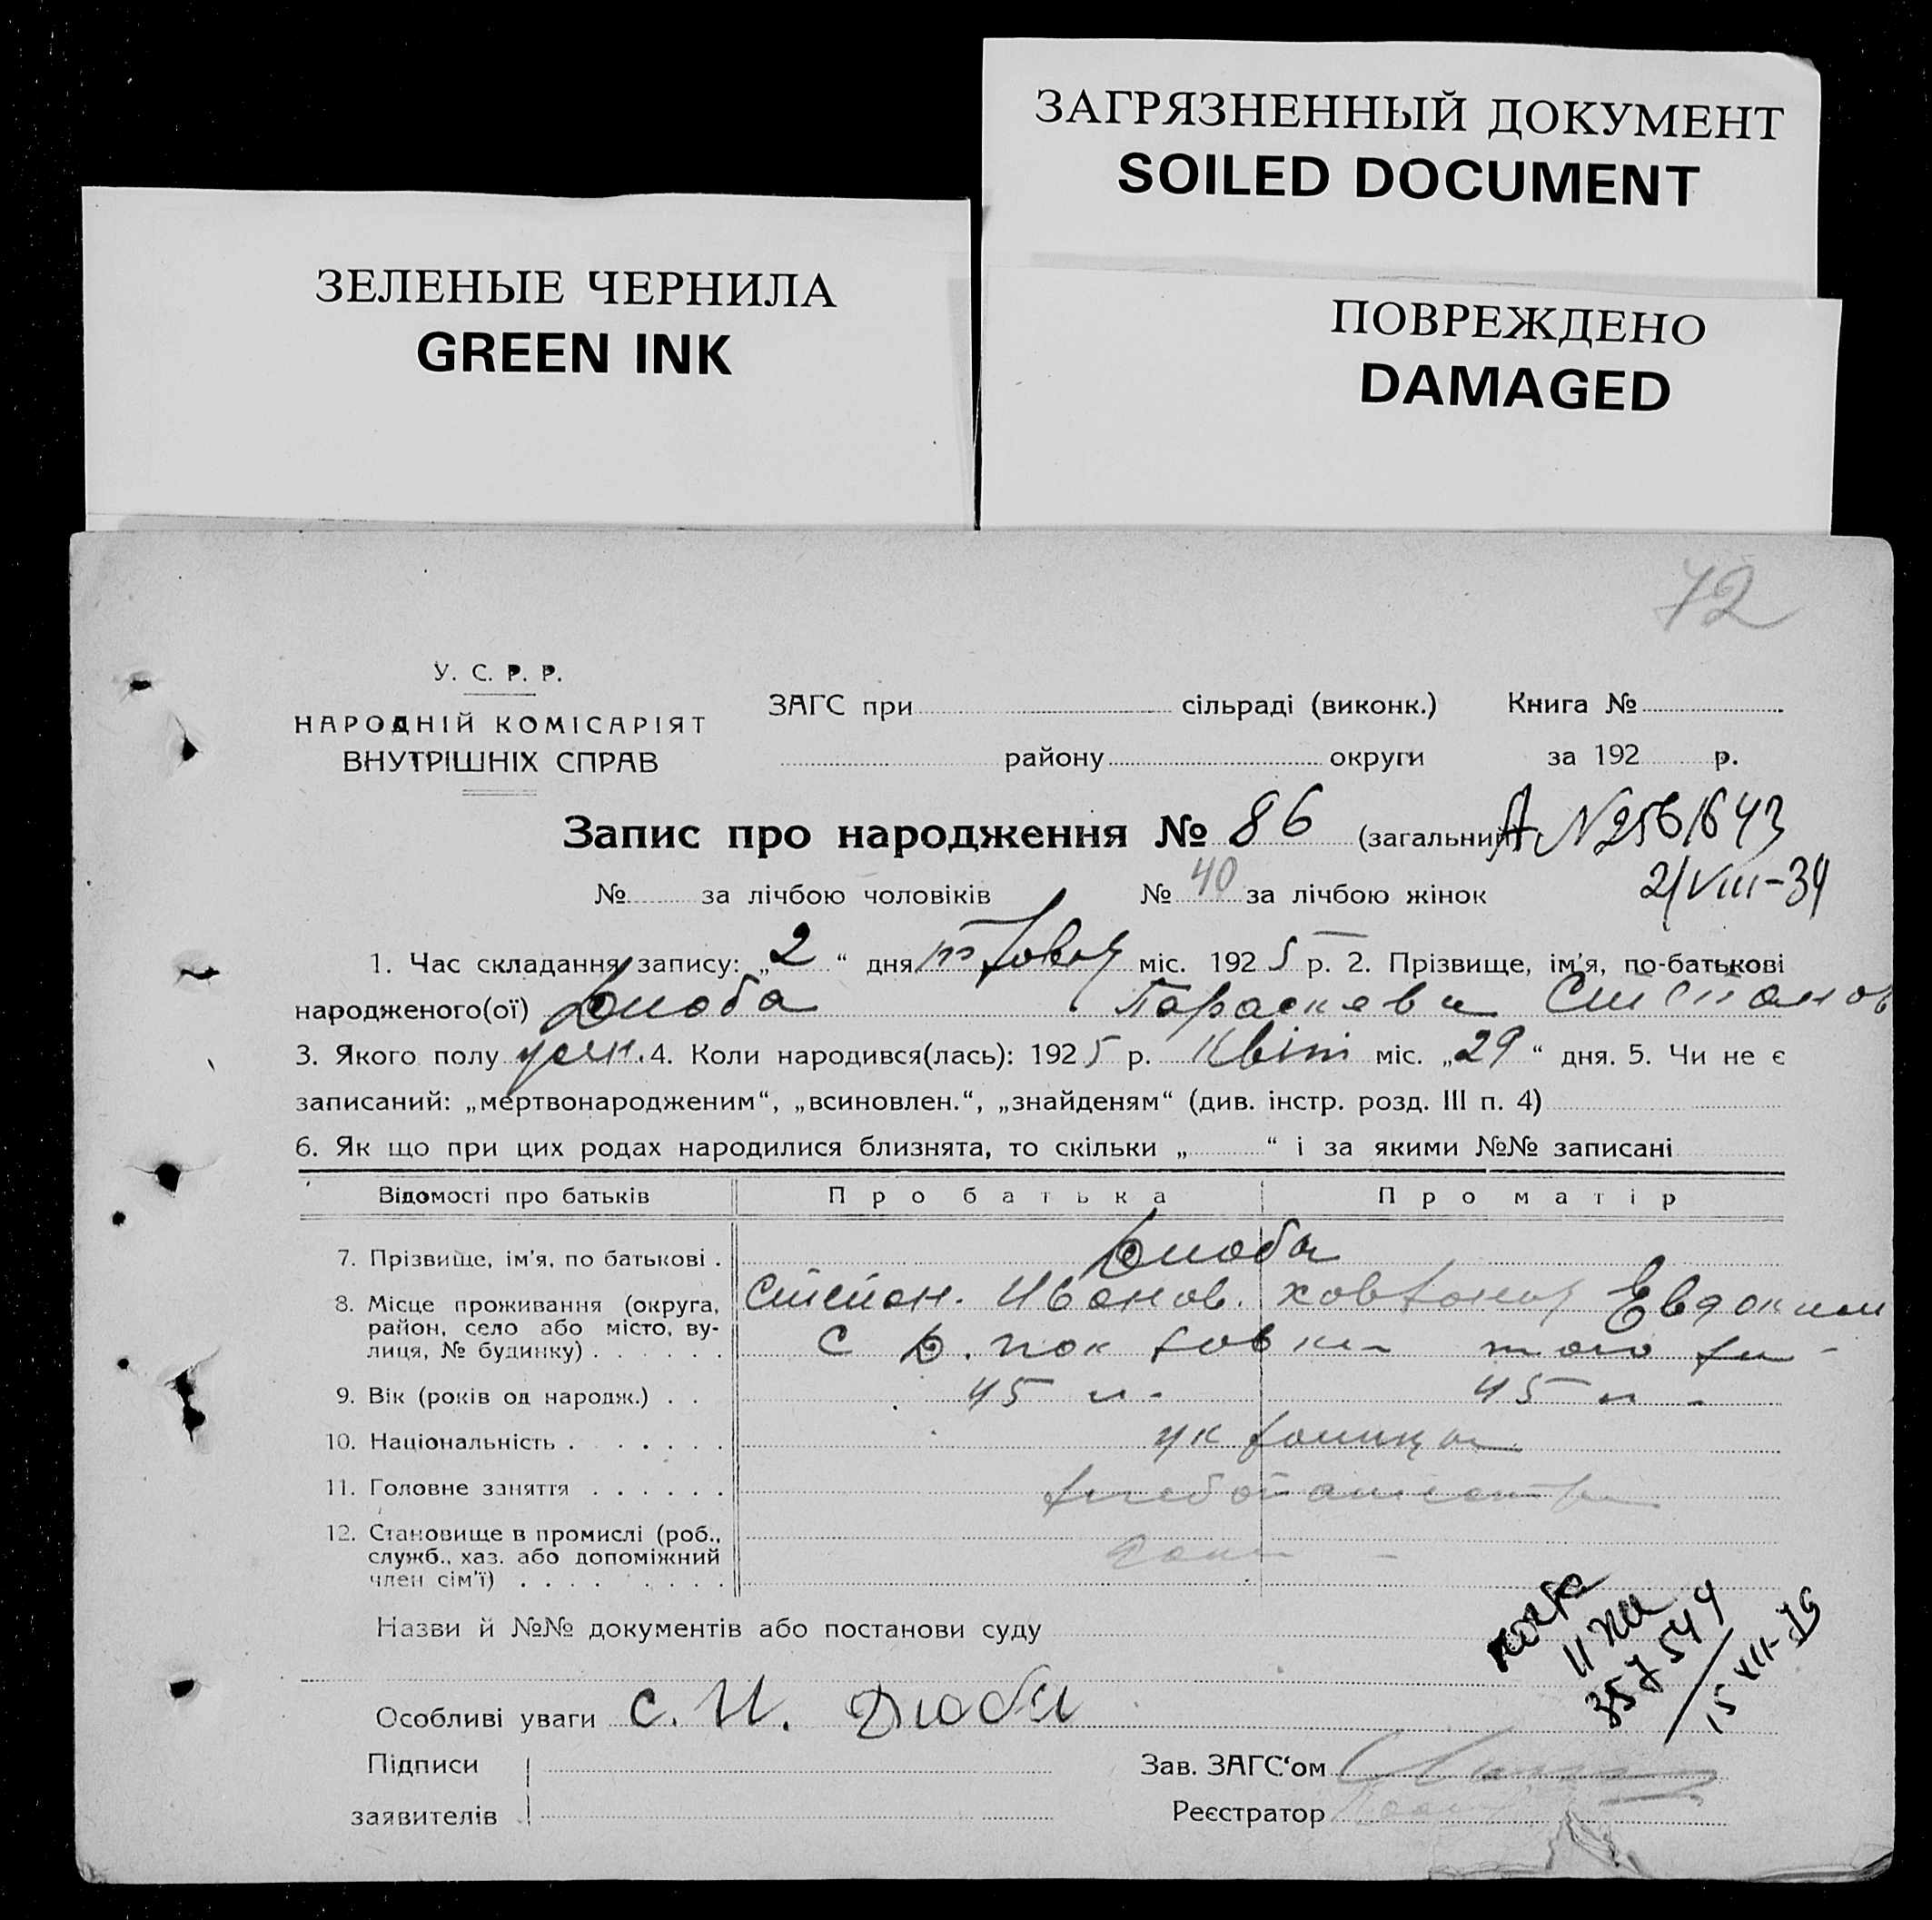 ЗАГРЯЗНЕННЫЙ ДОКУМЕНТ
SOILED DOCUMENT
ЗЕЛЕНЫЕ ЧЕРНИЛА
GREEN INK
ПОВРЕЖДЕНО
DAMAGED
72
У. С. Р. Р.
НАРОДНІЙ КОМІСАРІЯТ
ВНУТРІШНІХ СПРАВ
ЗАГС при сільраді (виконк.) Книга №
району округи за 192 р.
Запис про народження № 86 (загальний) А № 256643
№ за лічбою чоловіків № 40 за лічбою жінок 2/VIII-39
1. Час складання запису: „2“ дня травня міс. 1925 р. 2. Прізвище, ім'я, по-батькові
народженого(ої) Дюба Параскева Степанов
3. Якого полу 4. Коли народився(лась): 1925 р. Квіт міс. „29“ дня. 5. Чи не є
записаний: „мертвонародженим“, „всиновлен.“, „знайденям“ (див. інстр. розд. III п. 4)
6. Як що при цих родах народилися близнята, то скільки „ “ і за якими №№ записані
Відомості про батьків Про батька Про матір
7. Прізвище, ім'я, по батькові . Дюба
8. Місце проживання (округа, Степан. Иванов. Евдоким
район, село або місто, ву-
лиця, № будинку) . . . . . . С
9. Вік (років од народж.) . . 45 л. 45 л.
10. Національність . . . . . . українці
11. Головне заняття . . . . . .
12. Становище в промислі (роб.,
служб., хаз. або допоміжний
член сім'ї) . . . . . . . .
Назви й №№ документів або постанови суду
II
357544
15 XII-76
Особливі уваги С. И. Дюба
Підписи
заявителів
Зав. ЗАГС‘ом
Реєстратор